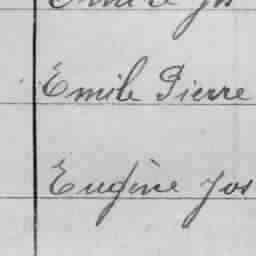 Emile Pierre
Eugène Jos